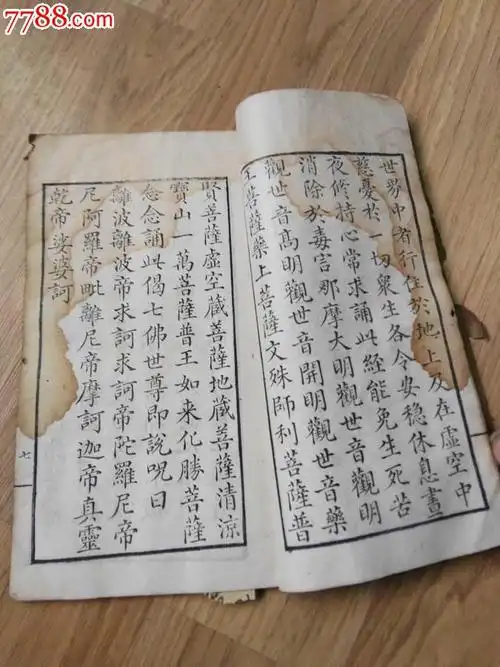 7788.com
世界中者行住於地上及在虛空中
慈憂於一切眾生各令安穩休息晝
夜修持心常求誦此經能免生死苦
消除於毒害那摩大明觀世音觀明
觀世音高明觀世音開明觀世音藥
王菩薩藥上菩薩文殊師利菩薩普
賢菩薩虛空藏菩薩地藏菩薩清涼
寶山一萬菩薩普王如来化勝菩薩
念念誦此偈七佛世尊即說呪曰
離波離波帝求訶求訶帝陀羅尼帝
尼阿羅帝毗離尼帝摩訶迦帝真靈
乾帝娑婆訶
七